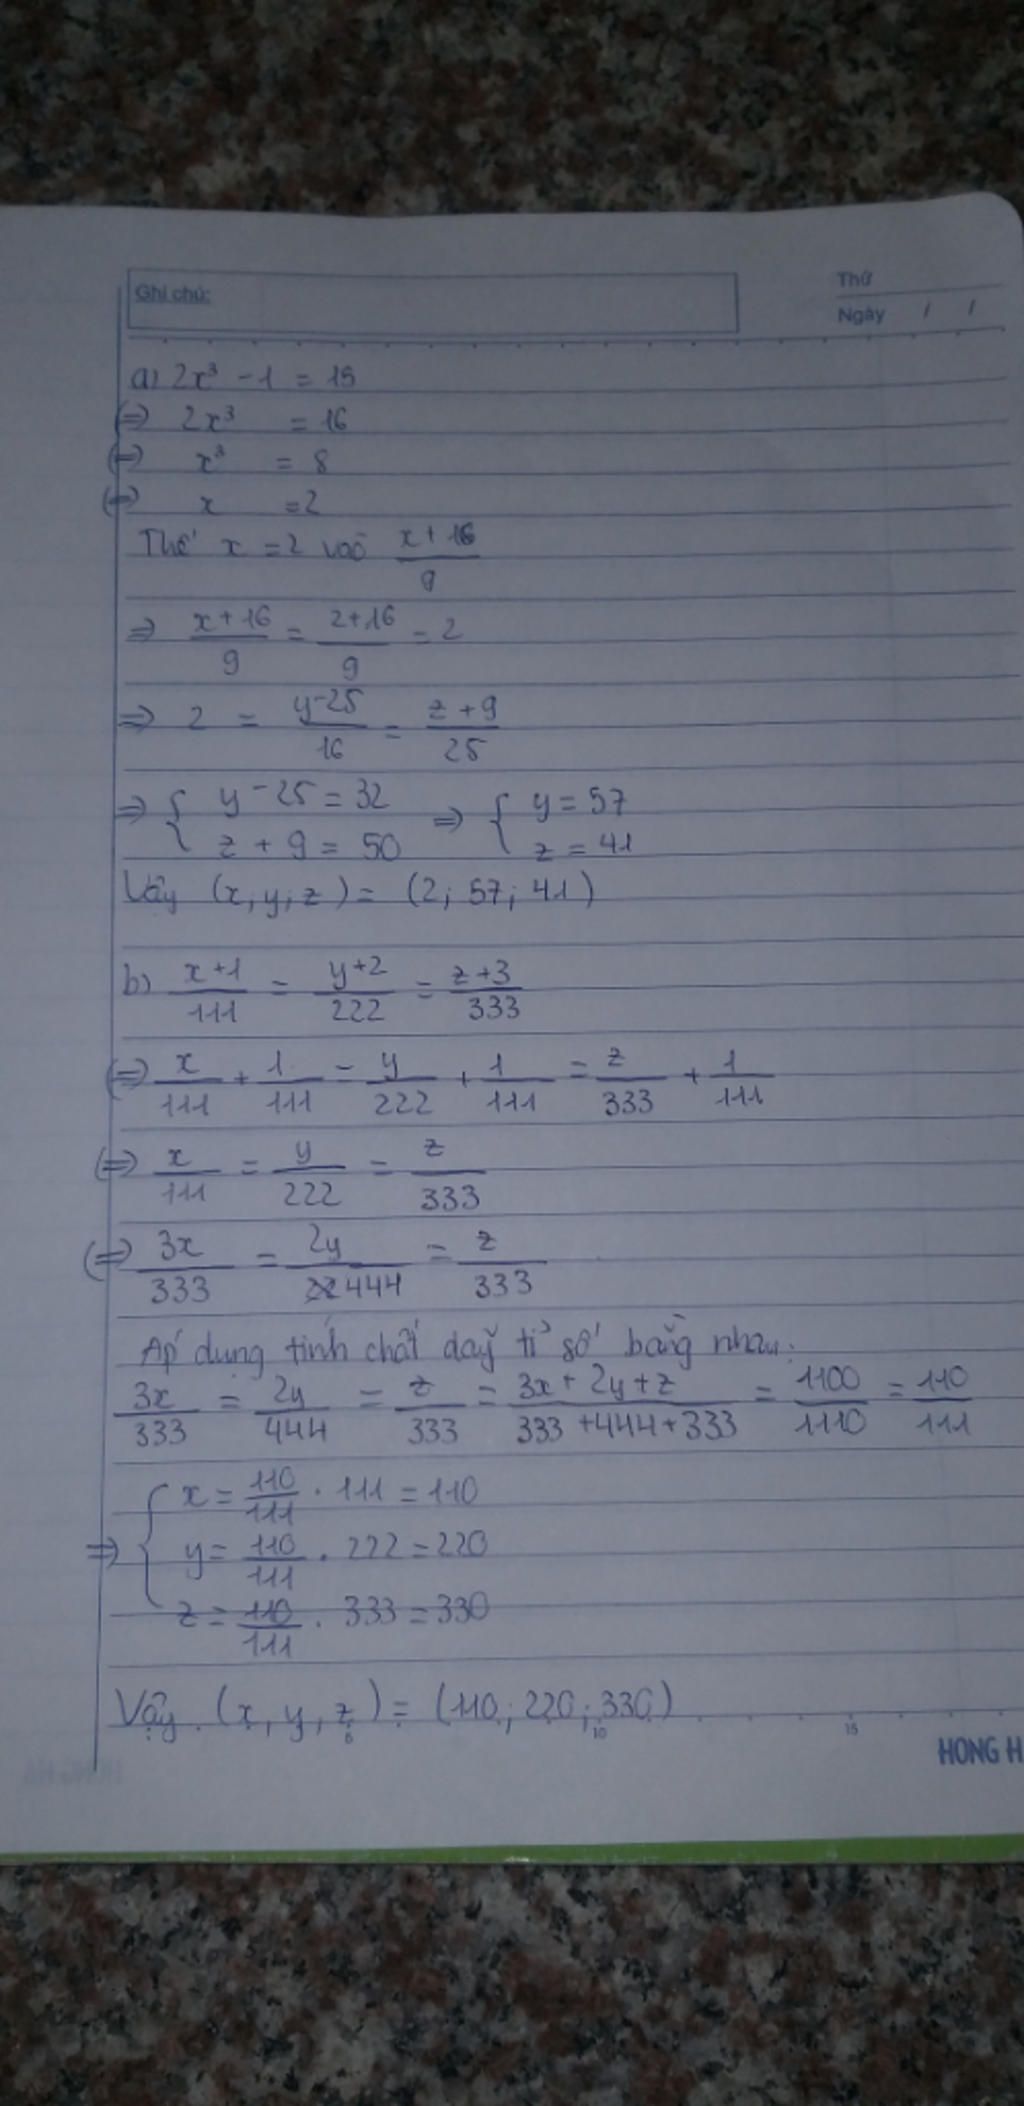 Ghi chú:
Thứ
Ngày / /
a) 2x³ - 1 = 15
(=) 2x³ = 16
(=) x³ = 8
(=) x = 2
Thế x = 2 vào (x + 16)/9
=> (x + 16)/9 = (2 + 16)/9 = 2
=> 2 = (y - 25)/16 = (z + 9)/25
=> { y - 25 = 32 => { y = 57
z + 9 = 50 z = 41
Vậy (x, y, z) = (2; 57; 41)
b) (x + 1)/111 = (y + 2)/222 = (z + 3)/333
(=) x/111 + 1/111 = y/222 + 1/111 = z/333 + 1/111
(=) x/111 = y/222 = z/333
(=) 3x/333 = 2y/444 = z/333
Áp dụng tính chất dãy tỉ số bằng nhau:
3x/333 = 2y/444 = z/333 = (3x + 2y + z)/(333 + 444 + 333) = 1100/1110 = 110/111
=> { x = 110/111 . 111 = 110
y = 110/111 . 222 = 220
z = 110/111 . 333 = 330
Vậy (x, y, z) = (110; 220; 330)
5 10 15
HONG H